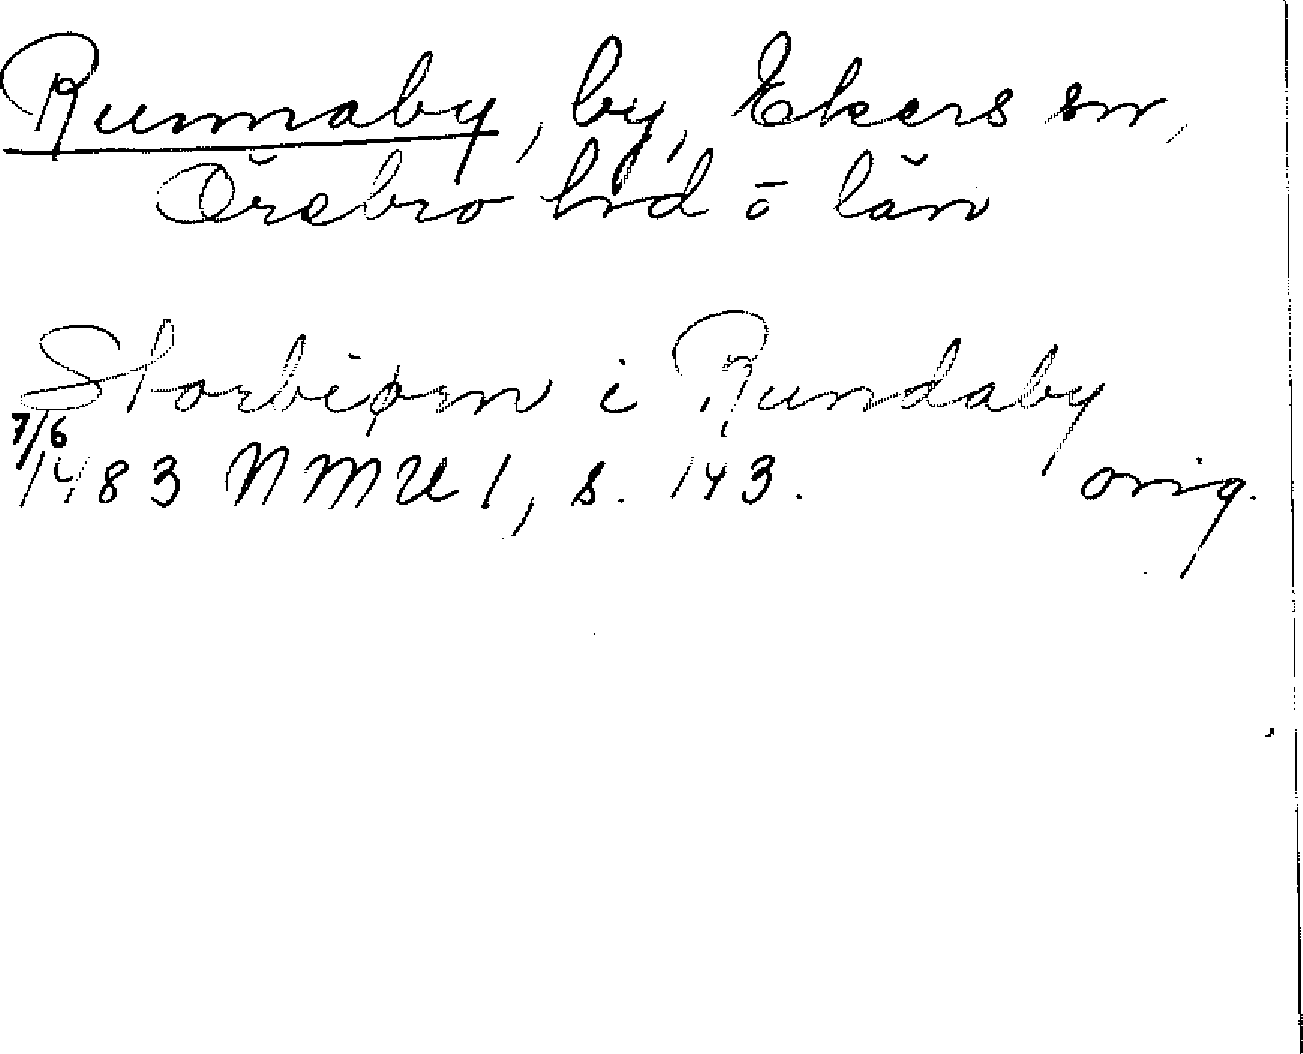 Runnaby, by, Ekers sn,
Örebro hd ō län
Storbiørn i Rundaby
7/6
1483 NMU 1, s. 143. orig.